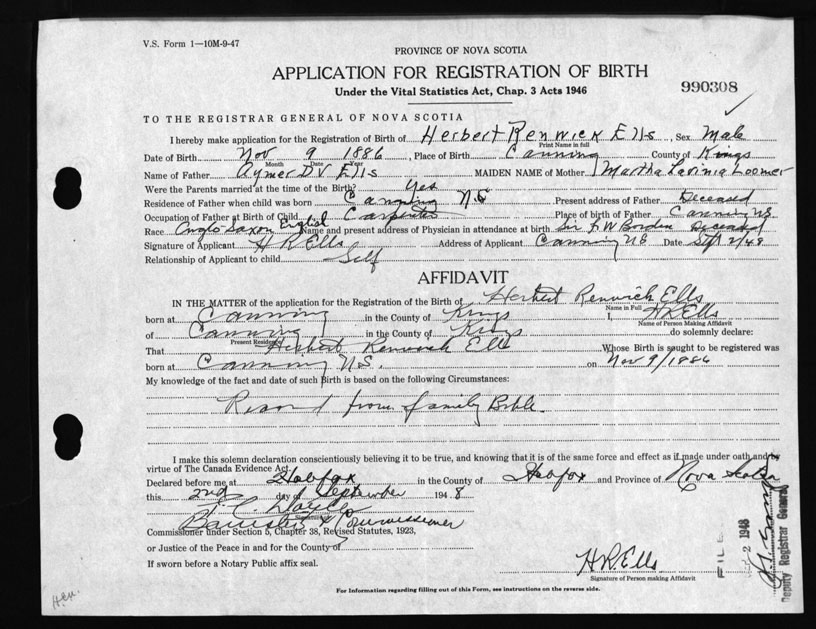 V.S. Form 1—10M-9-47
PROVINCE OF NOVA SCOTIA
APPLICATION FOR REGISTRATION OF BIRTH
Under the Vital Statistics Act, Chap. 3 Acts 1946
990308
TO THE REGISTRAR GENERAL OF NOVA SCOTIA
I hereby make application for the Registration of Birth of Herbert Renwick Ells, Sex Male
Print Name in full
Date of Birth Nov 9 1886, Place of Birth Canning County of Kings
Month Date Year
Name of Father Aymer D V Ells MAIDEN NAME of Mother Martha Lavinia Loomer
Were the Parents married at the time of the Birth? Yes
Residence of Father when child was born Canning N.S. Present address of Father Deceased
Occupation of Father at Birth of Child Carpenter Place of birth of Father Canning N.S.
Race Anglo Saxon English Name and present address of Physician in attendance at birth Sir F W Borden Deceased
Signature of Applicant H R Ells Address of Applicant Canning N S Date Sept 2/48
Relationship of Applicant to child Self
AFFIDAVIT
IN THE MATTER of the application for the Registration of the Birth of Herbert Renwick Ells
Name in Full
born at Canning in the County of Kings I, H R Ells
Name of Person Making Affidavit
of Canning in the County of Kings do solemnly declare:
Present Residence
That Herbert Renwick Ells Whose Birth is sought to be registered was
born at Canning N.S. on Nov 9/1886
My knowledge of the fact and date of such Birth is based on the following Circumstances:
Record from family Bible.
I make this solemn declaration conscientiously believing it to be true, and knowing that it is of the same force and effect as if made under oath and by
virtue of The Canada Evidence Act.
Declared before me at Halifax in the County of Halifax and Province of Nova Scotia
this 2nd day of September 1948
Barrister & Commissioner
Commissioner under Section 5, Chapter 38, Revised Statutes, 1923,
or Justice of the Peace in and for the County of
If sworn before a Notary Public affix seal.
H R Ells
Signature of Person making Affidavit
For Information regarding filling out of this Form, see instructions on the reverse side.
FILE
2 1948
Deputy Registrar General